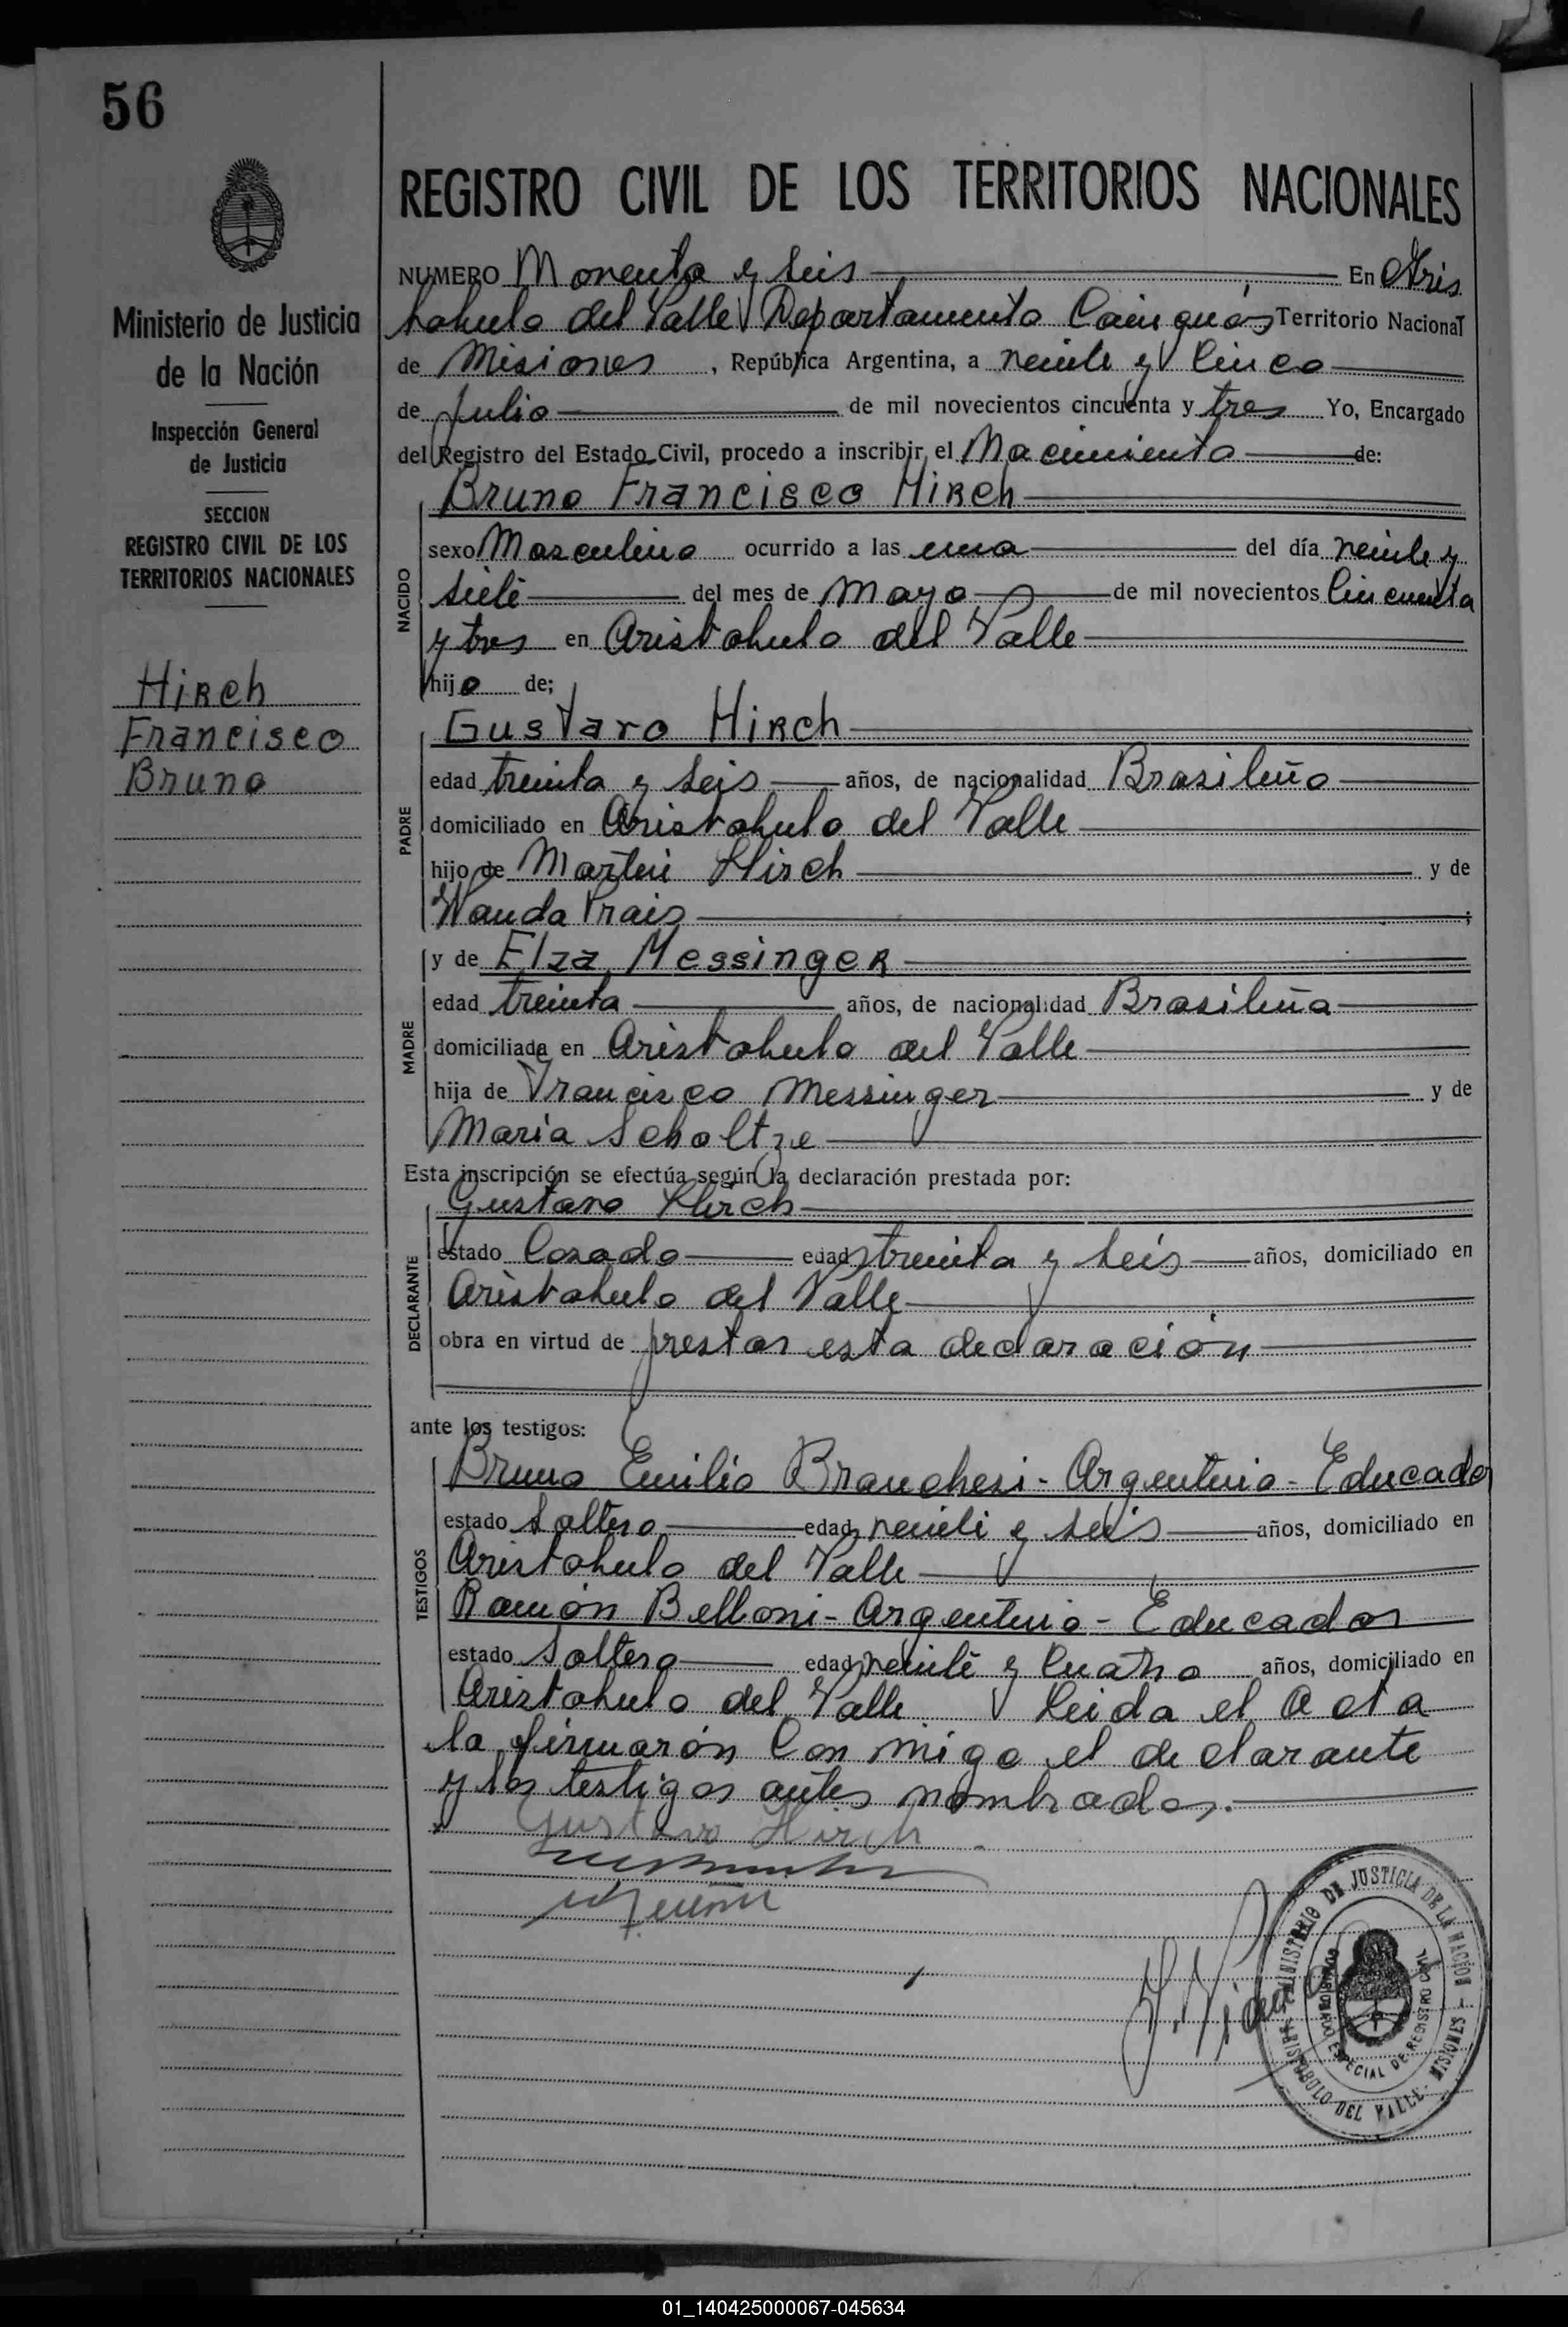 56
Ministerio de Justicia
de la Nación
Inspección General
de Justicia
SECCION
REGISTRO CIVIL DE LOS
TERRITORIOS NACIONALES
Hirch
Francisco
Bruno
REGISTRO CIVIL DE LOS TERRITORIOS NACIONALES
NUMERO Noventa y seis En Aris
tobulo del Valle Departamento Cainguás Territorio Nacional
de Misiones, República Argentina, a veinte y cinco
de Julio de mil novecientos cincuenta y tres Yo, Encargado
del Registro del Estado Civil, procedo a inscribir el Nacimiento de:
Bruno Francisco Hirch
NACIDO
sexo Masculino ocurrido a las una del día veinte y
siete del mes de Mayo de mil novecientos Cincuenta
y tres en Aristobulo del Valle
hijo de;
Gustavo Hirch
PADRE
edad treinta y seis años, de nacionalidad Brasileño
domiciliado en Aristobulo del Valle
hijo de Martin Hirch y de
Wanda Prais;
MADRE
y de Elza Messinger
edad treinta años, de nacionalidad Brasileña
domiciliada en Aristobulo del Valle
hija de Francisco Messinger y de
Maria Scholtze
Esta inscripción se efectúa según la declaración prestada por:
Gustavo Hirch
DECLARANTE
estado Casado edad treinta y seis años, domiciliado en
Aristobulo del Valle
obra en virtud de prestar esta declaración
ante los testigos:
TESTIGOS
Bruno Emilio Branchesi - Argentino - Educador
estado Soltero edad veinte y seis años, domiciliado en
Aristobulo del Valle
Ramón Belloni - Argentino - Educador
estado Soltero edad veinte y Cuatro años, domiciliado en
Aristobulo del Valle. Leida el Acta
la firmarón Con migo el declarante
y los testigos antes nombrados.
Gustavo Hirch
MINISTERIO DE JUSTICIA DE LA NACION
ARISTOBULO DEL VALLE - MISIONES
ESPECIAL DE REGISTRO CIVIL
01_140425000067-045634